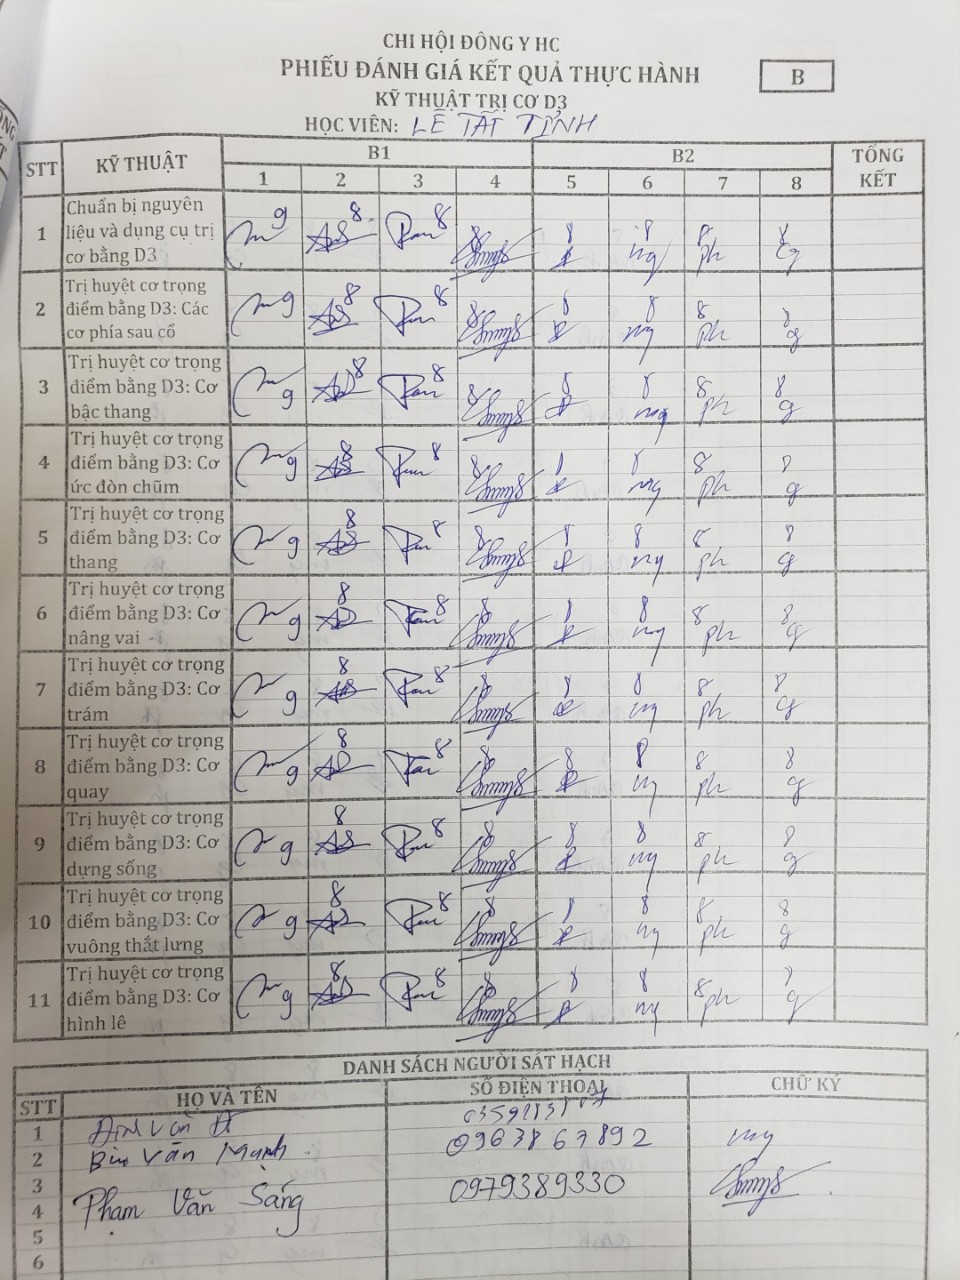 CHI HỘI ĐÔNG Y HC
PHIẾU ĐÁNH GIÁ KẾT QUẢ THỰC HÀNH
B
KỸ THUẬT TRỊ CƠ D3
HỌC VIÊN: LÊ TẤT TỈNH
STT KỸ THUẬT B1 B2 TỔNG KẾT
1 2 3 4 5 6 7 8
1 Chuẩn bị nguyên
liệu và dụng cụ trị
cơ bằng D3
9 8 8 8 8 8 8 8
2 Trị huyệt cơ trọng
điểm bằng D3: Các
cơ phía sau cổ
9 8 8 8 8 8 8 8
3 Trị huyệt cơ trọng
điểm bằng D3: Cơ
bậc thang
9 8 8 8 8 8 8 8
4 Trị huyệt cơ trọng
điểm bằng D3: Cơ
ức đòn chũm
9 8 8 8 8 8 8 8
5 Trị huyệt cơ trọng
điểm bằng D3: Cơ
thang
9 8 8 8 8 8 8 8
6 Trị huyệt cơ trọng
điểm bằng D3: Cơ
nâng vai
9 8 8 8 8 8 8 8
7 Trị huyệt cơ trọng
điểm bằng D3: Cơ
trám
9 8 8 8 8 8 8 8
8 Trị huyệt cơ trọng
điểm bằng D3: Cơ
quay
9 8 8 8 8 8 8 8
9 Trị huyệt cơ trọng
điểm bằng D3: Cơ
dựng sống
9 8 8 8 8 8 8 8
10 Trị huyệt cơ trọng
điểm bằng D3: Cơ
vuông thắt lưng
9 8 8 8 8 8 8 8
11 Trị huyệt cơ trọng
điểm bằng D3: Cơ
hình lê
9 8 8 8 8 8 8 8
DANH SÁCH NGƯỜI SÁT HẠCH
STT HỌ VÀ TÊN SỐ ĐIỆN THOẠI CHỮ KÝ
1
2 Bùi Văn Mạnh 0963867892
3
4 Phạm Văn Sáng 0979389330
5
6